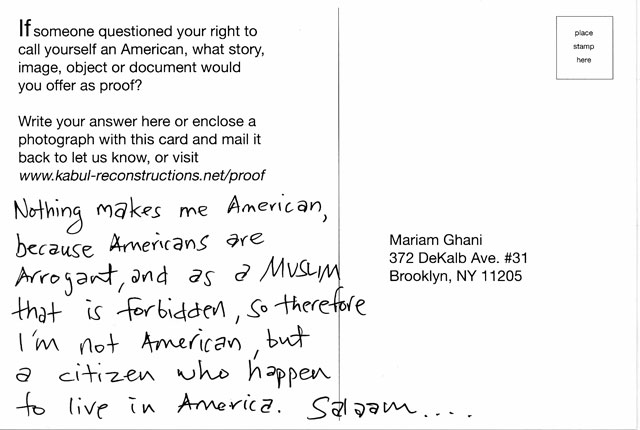 If someone questioned your right to
call yourself an American, what story,
image, object or document would
you offer as proof?
Write your answer here or enclose a
photograph with this card and mail it
back to let us know, or visit
www.kabul-reconstructions.net/proof
Nothing makes me American,
because Americans are
Arrogant, and as a MUSLIM
that is forbidden, so therefore
I'm not American, but
a citizen who happen
to live in America. Salaam....
place
stamp
here
Mariam Ghani
372 DeKalb Ave. #31
Brooklyn, NY 11205